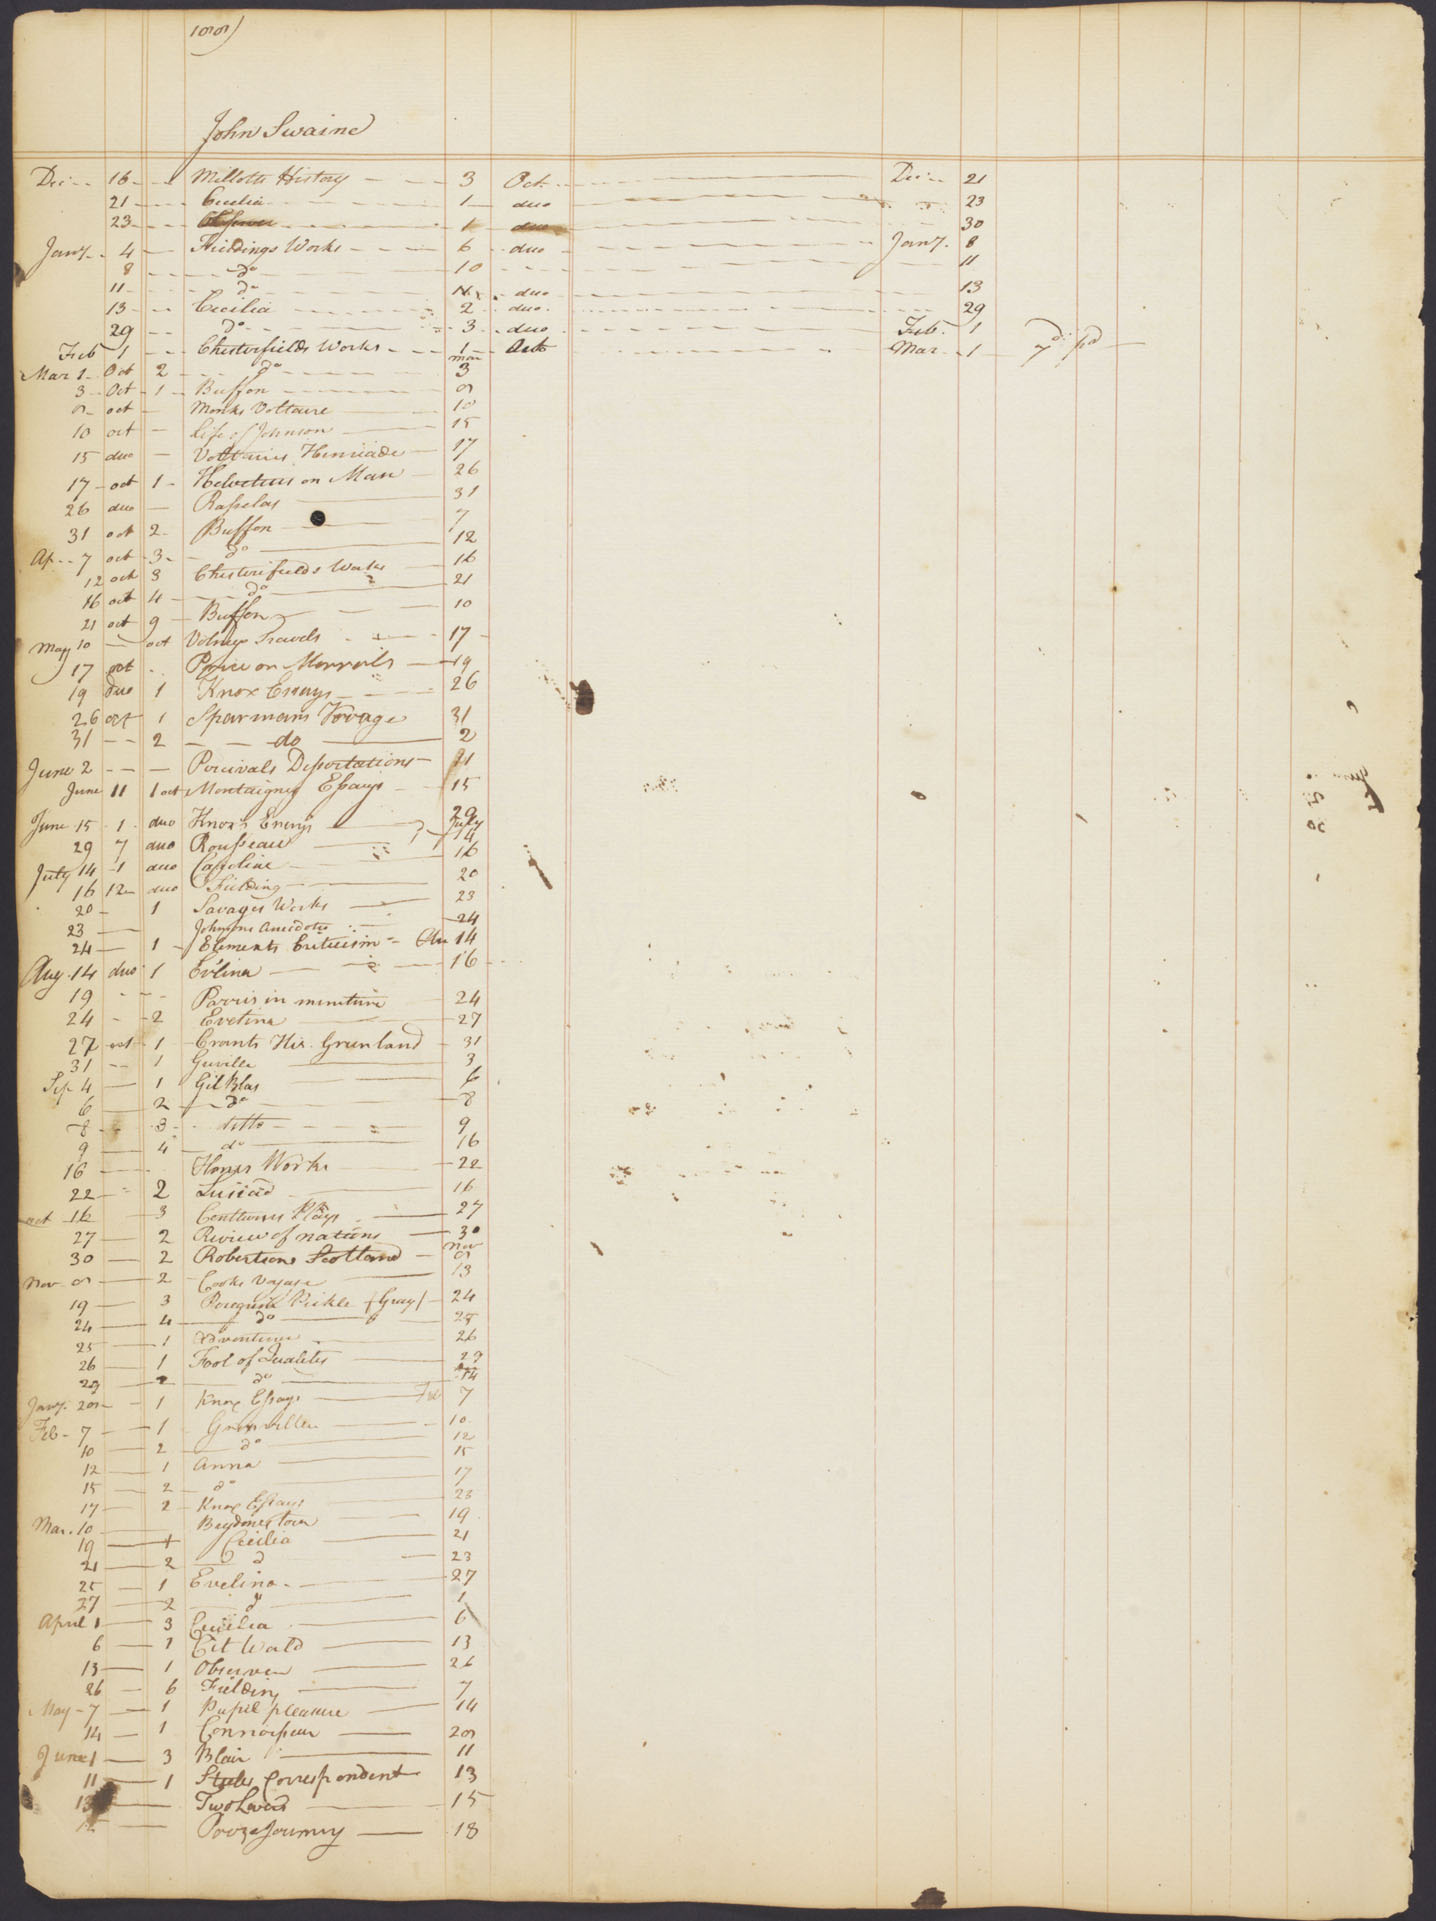 John Swaine
Dec 16 Millotts History 3 Oct Dec 21
21 Cecilia 1 duo 23
23 Observer 1 duo 30
Jany 4 Fieldings Works 6 duo Jany. 8
8 do 10 11
11 do duo 13
13 Cecilia 2 duo 29
29 do 3 duo Feb. 1
Feb 1 Chesterfields Works 1 Oct Mar 1 7d pd
Mar 1 Oct 2 do mar 3
3 Oct 1 Buffon
oct Monks Voltaire 10
10 oct Life of Johnson 15
15 duo Voltaires Henriade 17
17 oct 1 Helvetius on Man 26
26 duo Raſselas 31
31 oct 2 Buffon 7
Ap 7 oct 3 do 12
12 oct 3 Chesterfields Works 16
16 oct 4 do 21
21 oct 9 Buffon 10
May 10 oct Volneys Travels 17
17 oct Price on Morrails 19
19 duo 1 Knox Essays 26
26 oct 1 Sparmans Voyage 31
31 2 do 2
June 2 Percivals Deſsertations 11
June 11 1 oct Montaignes Eſsays 15
June 15 1 duo Knox's Essays 29
29 7 duo Rouſseau July 14
July 14 1 duo Caroline 16
16 12 duo Fielding 20
20 1 Savages Works 23
23 Johnsons Anecdotes 24
24 1 Elements Criticism Au 14
Aug. 14 duo 1 Evlina 16
19 Parris in minature 24
24 2 Evelina 27
27 oct 1 Crants His. Greenland 31
31 1 Greville 3
Sep 4 1 Gil Blas 6
6 2 do 8
8 3 ditto 9
9 4 do 16
16 Homes Works 22
22 2 Lusiad 16
oct 16 3 Centlivres Plays 27
27 2 Review of nations 30
30 2 Robertsons Scotland nov
Nov 2 Cooks Voyage 13
19 3 Peregrine Pickle (Gray) 24
24 4 do 25
25 1 Adventurer 26
26 1 Fool of Quality 29
29 2 do 14
Jany. 1 Knox Eſsays Feb 7
Feb 7 1 10
10 2 do 12
12 1 Anna 15
15 2 do 17
17 2 Knox Eſsays 23
Mar. 10 Brydones tour 19
19 1 Cecilia 21
21 2 d 23
25 1 Evelina 27
27 2 do 1
April 1 3 Cecilia 6
6 1 Cit World 13
13 1 Observer 26
26 6 Fielding 7
May 7 1 Pupil pleasure 14
14 1 Connoiſseur
June 1 3 Blair 11
11 1 Steeles Correspondent 13
13 15
15 18